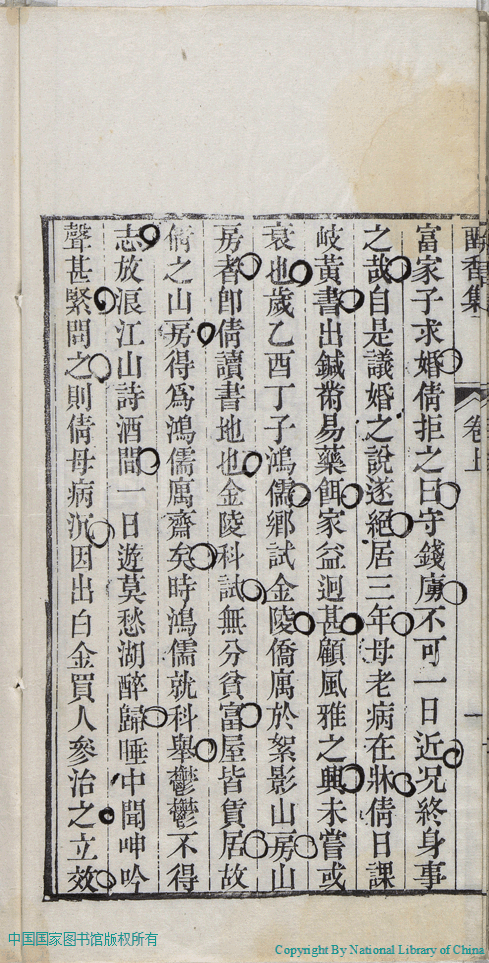 酣香集
卷上
一
富家子求婚倩拒之曰守錢虜不可一日近况終身事
之哉自是議婚之說遂絕居三年母老病在牀倩日課
岐黃書出鍼黹易藥餌家益迥甚顧風雅之興未嘗或
衰也歲乙酉丁子鴻儒鄉試金陵僑寓於絮影山房山
房者卽倩讀書地也金陵科試無分貧富屋皆賃居故
倩之山房得爲鴻儒寓齋矣時鴻儒就科舉鬱鬱不得
志放浪江山詩酒間一日遊莫愁湖醉歸睡中聞呻吟
聲甚緊問之則倩母病沉因出白金買人參治之立效
中国国家图书馆版权所有
Copyright By National Library of China